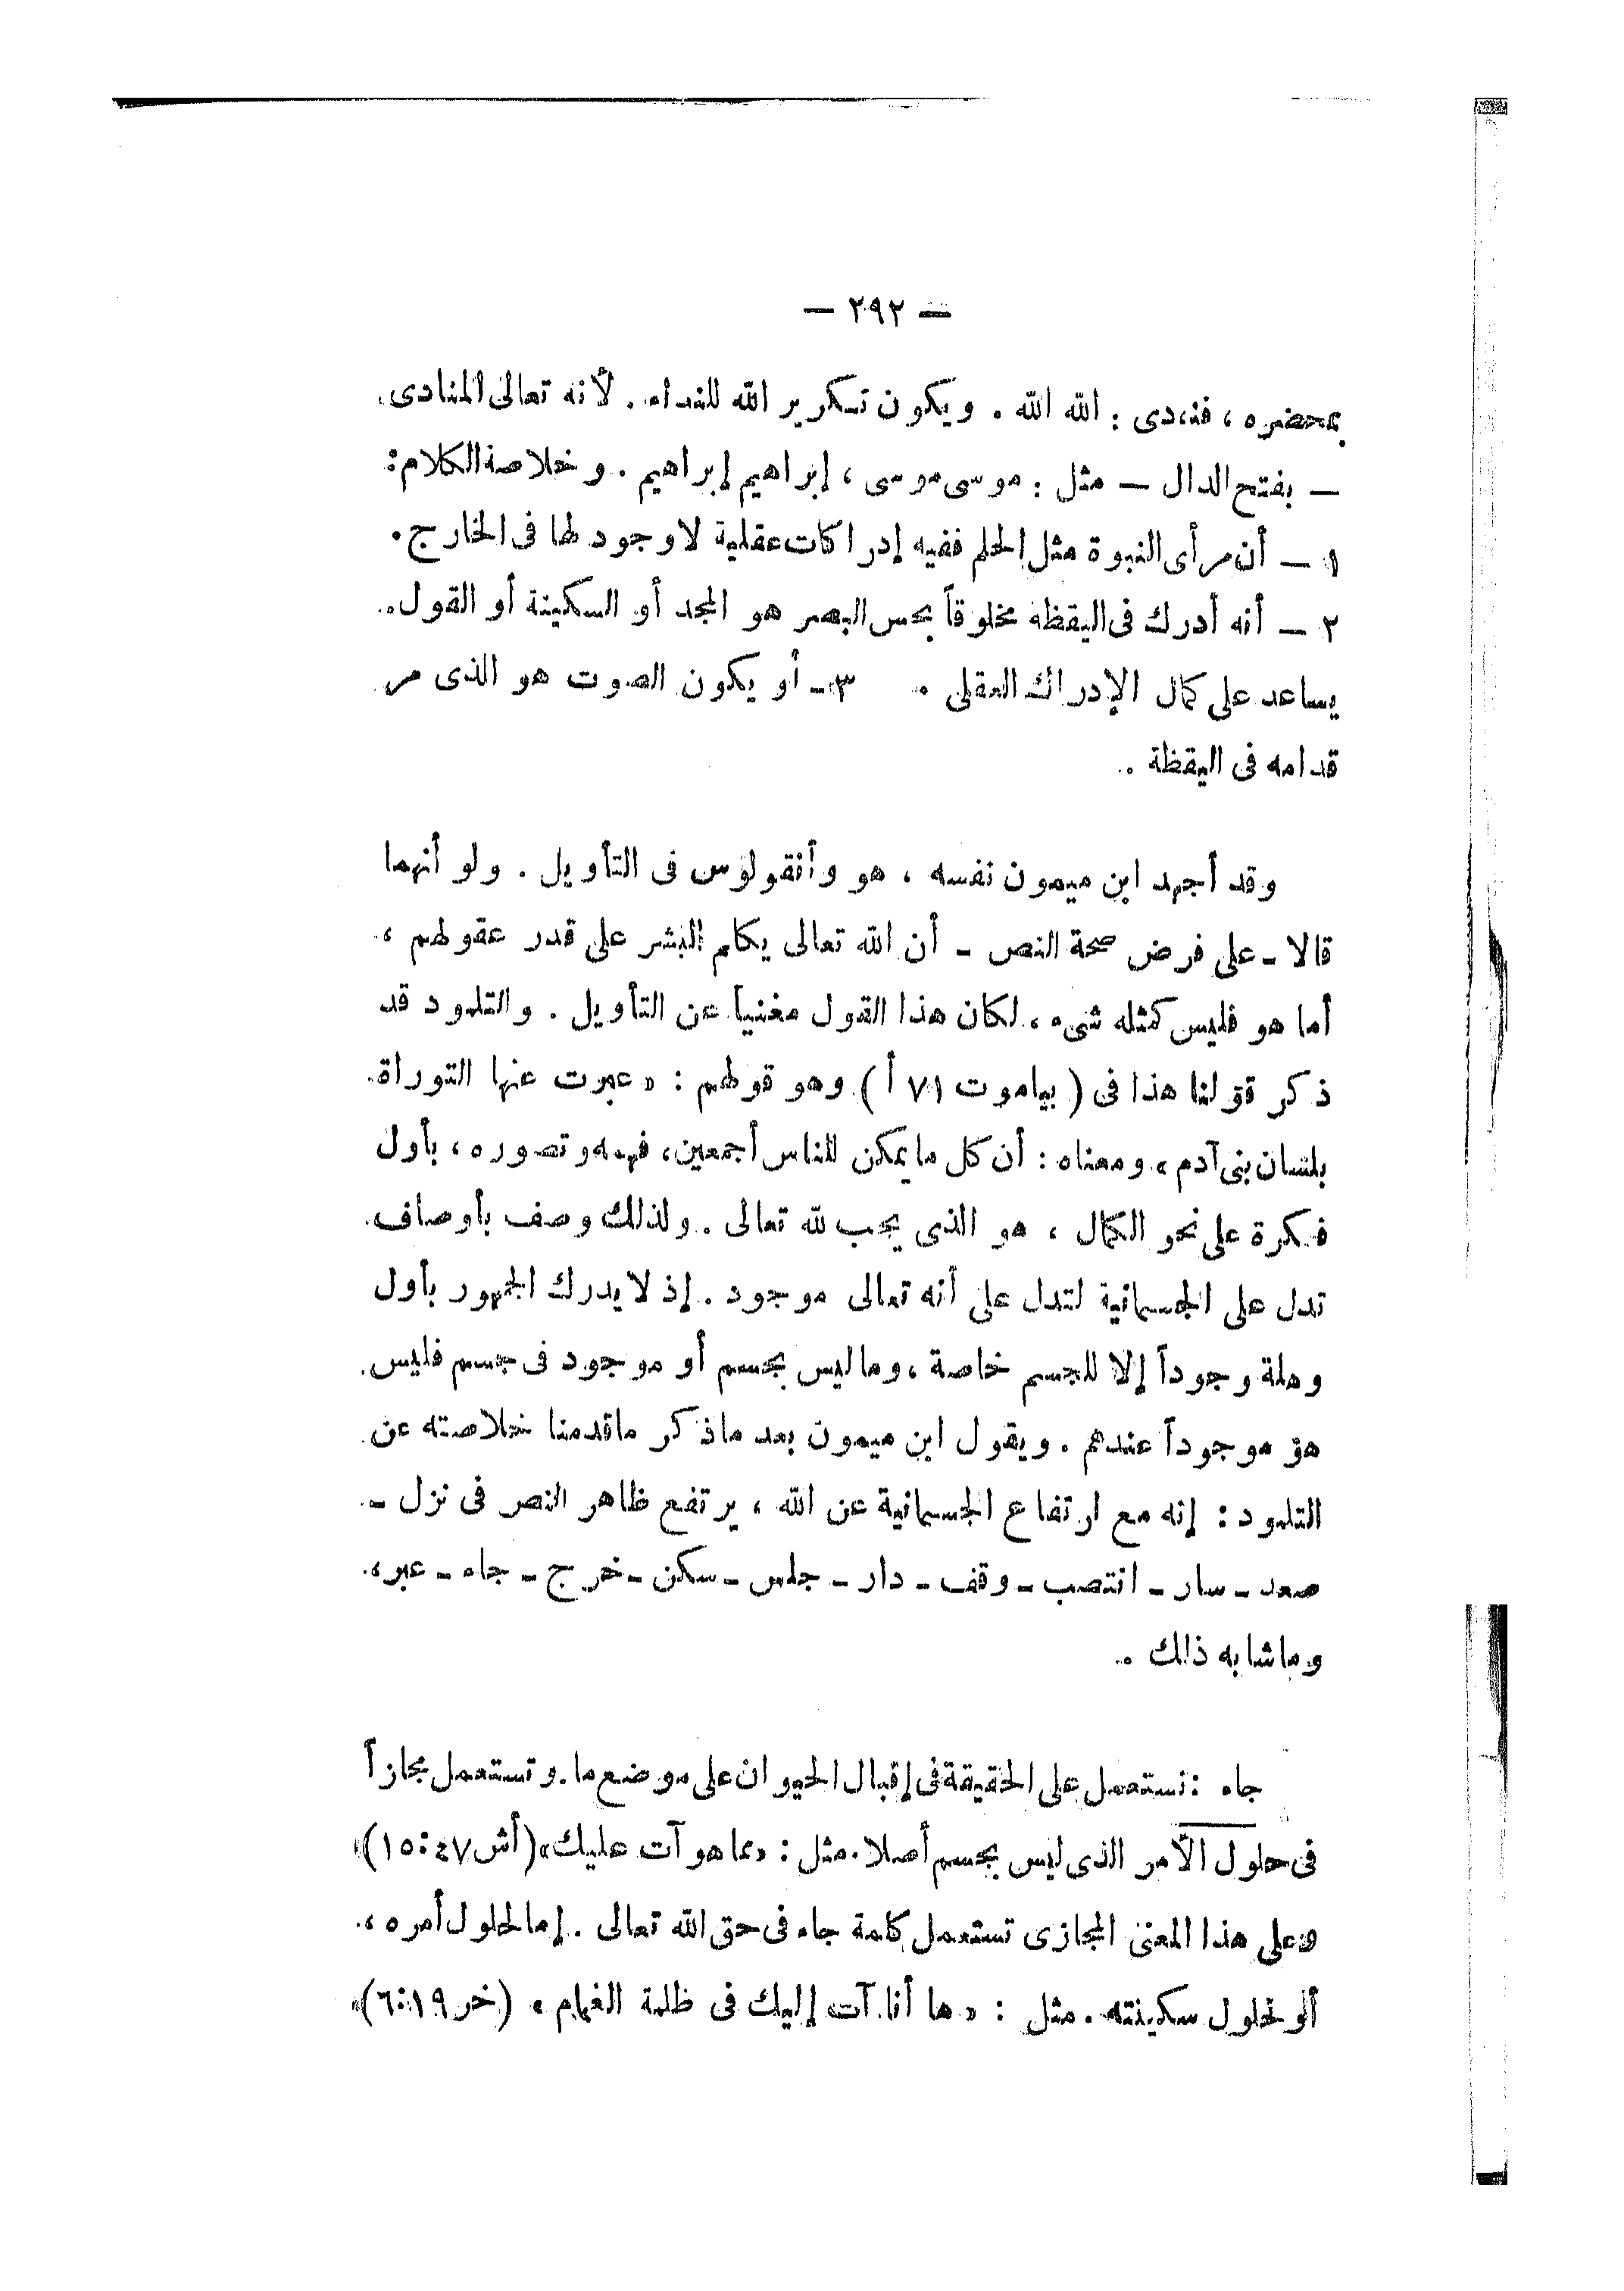 — ٢٩٢ —
بمحضره ، فنودى : الله الله . ويكون تكرير الله للنداء . لأنه تعالى المنادى
— بفتح الدال — مثل : موسى موسى ، إبراهيم إبراهيم . وخلاصة الكلام :
١ — أن مرأى النبوة مثل الحلم ففيه إدراكات عقلية لا وجود لها فى الخارج .
٢ — أنه أدرك فى اليقظة مخلوقاً بحس البصر هو المجد أو السكينة أو القول .
يساعد على كمال الإدراك العقلى . ٣ ـ أو يكون الصوت هو الذى مر
قدامه فى اليقظة .
وقد أجهد ابن ميمون نفسه ، هو وأنقولوس فى التأويل . ولو أنهما
قالا ـ على فرض صحة النص ـ أن الله تعالى يكلم البشر على قدر عقولهم ،
أما هو فليس كمثله شىء ، لكان هذا القول مغنياً عن التأويل . والتلمود قد
ذكر قولنا هذا فى ( يياموت ٧١ أ ) وهو قولهم : « عبرت عنها التوراة
بلسان بنى آدم » ومعناه : أن كل ما يمكن للناس أجمعين ، فهمه وتصوره ، بأول
فكرة على نحو الكمال ، هو الذى يجب لله تعالى . ولذلك وصف بأوصاف
تدل على الجسمانية لتدل على أنه تعالى موجود . إذ لا يدرك الجمهور بأول
وهلة وجوداً إلا للجسم خاصة ، وما ليس بجسم أو موجود فى جسم فليس
هو موجوداً عندهم . ويقول ابن ميمون بعد ماذكر ماقدمنا خلاصته عن
التلمود : إنه مع ارتفاع الجسمانية عن الله ، يرتفع ظاهر النص فى نزل ـ
صعد ـ سار ـ انتصب ـ وقف ـ دار ـ جلس ـ سكن ـ خرج ـ جاء ـ عبر ،
وماشابه ذلك .
جاء : تستعمل على الحقيقة فى إقبال الحيوان على موضع ما . وتستعمل مجازاً
فى حلول الأمر الذى ليس بجسم أصلا . مثل : « مما هو آت عليك » (أش ٤٧:١٥)
وعلى هذا المعنى المجازى تستعمل كلمة جاء فى حق الله تعالى . إما لحلول أمره ،
أو لحلول سكينته . مثل : « ها أنا آت إليك فى ظلمة الغمام » (خر ١٩:٦)